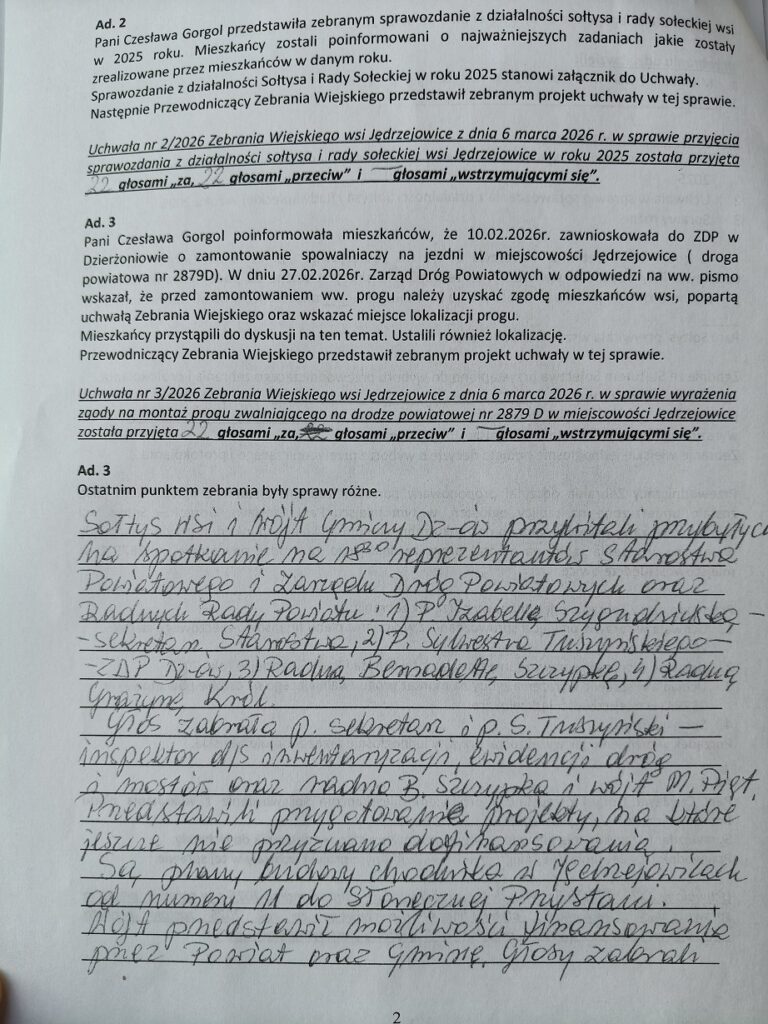 Ad. 2
Pani Czesława Gorgol przedstawiła zebranym sprawozdanie z działalności sołtysa i rady sołeckiej wsi
w 2025 roku. Mieszkańcy zostali poinformowani o najważniejszych zadaniach jakie zostały
zrealizowane przez mieszkańców w danym roku.
Sprawozdanie z działalności Sołtysa i Rady Sołeckiej w roku 2025 stanowi załącznik do Uchwały.
Następnie Przewodniczący Zebrania Wiejskiego przedstawił zebranym projekt uchwały w tej sprawie.
Uchwała nr 2/2026 Zebrania Wiejskiego wsi Jędrzejowice z dnia 6 marca 2026 r. w sprawie przyjęcia
sprawozdania z działalności sołtysa i rady sołeckiej wsi Jędrzejowice w roku 2025 została przyjęta
22 głosami „za, 22 głosami „przeciw” i — głosami „wstrzymującymi się”.
Ad. 3
Pani Czesława Gorgol poinformowała mieszkańców, że 10.02.2026r. zawnioskowała do ZDP w
Dzierżoniowie o zamontowanie spowalniaczy na jezdni w miejscowości Jędrzejowice ( droga
powiatowa nr 2879D). W dniu 27.02.2026r. Zarząd Dróg Powiatowych w odpowiedzi na ww. pismo
wskazał, że przed zamontowaniem ww. progu należy uzyskać zgodę mieszkańców wsi, popartą
uchwałą Zebrania Wiejskiego oraz wskazać miejsce lokalizacji progu.
Mieszkańcy przystąpili do dyskusji na ten temat. Ustalili również lokalizację.
Przewodniczący Zebrania Wiejskiego przedstawił zebranym projekt uchwały w tej sprawie.
Uchwała nr 3/2026 Zebrania Wiejskiego wsi Jędrzejowice z dnia 6 marca 2026 r. w sprawie wyrażenia
zgody na montaż progu zwalniającego na drodze powiatowej nr 2879 D w miejscowości Jędrzejowice
została przyjęta 22 głosami „za, głosami „przeciw” i — głosami „wstrzymującymi się”.
Ad. 3
Ostatnim punktem zebrania były sprawy różne.
Sołtys wsi i Wójt Gminy Dz-ów przywitali przybyłych
na spotkanie na 18³⁰ reprezentantów Starostwa
Powiatowego i Zarządu Dróg Powiatowych oraz
Radnych Rady Powiatu: 1) P. Izabellę –
– sekretarz Starostwa, 2) P. Sylwestra Truszyńskiego –
– ZDP Dz-ów, 3) Radną Bernadettę Szczypkę, 4) Radną
Grażynę Król.
Głos zabrała p. sekretarz i p. S. Truszyński –
inspektor d/s inwentaryzacji, ewidencji dróg
i mostów oraz radna B. Szczypka i wójt M. Pięt.
Przedstawili przygotowanie projekty, na które
jeszcze nie przyznano dofinansowania.
Są plany budowy chodnika w Jędrzejowicach
od numeru 11 do Słonecznej Przystani.
Wójt przedstawił możliwości finansowania
przez Powiat oraz Gminę. Głosy zabrali
2